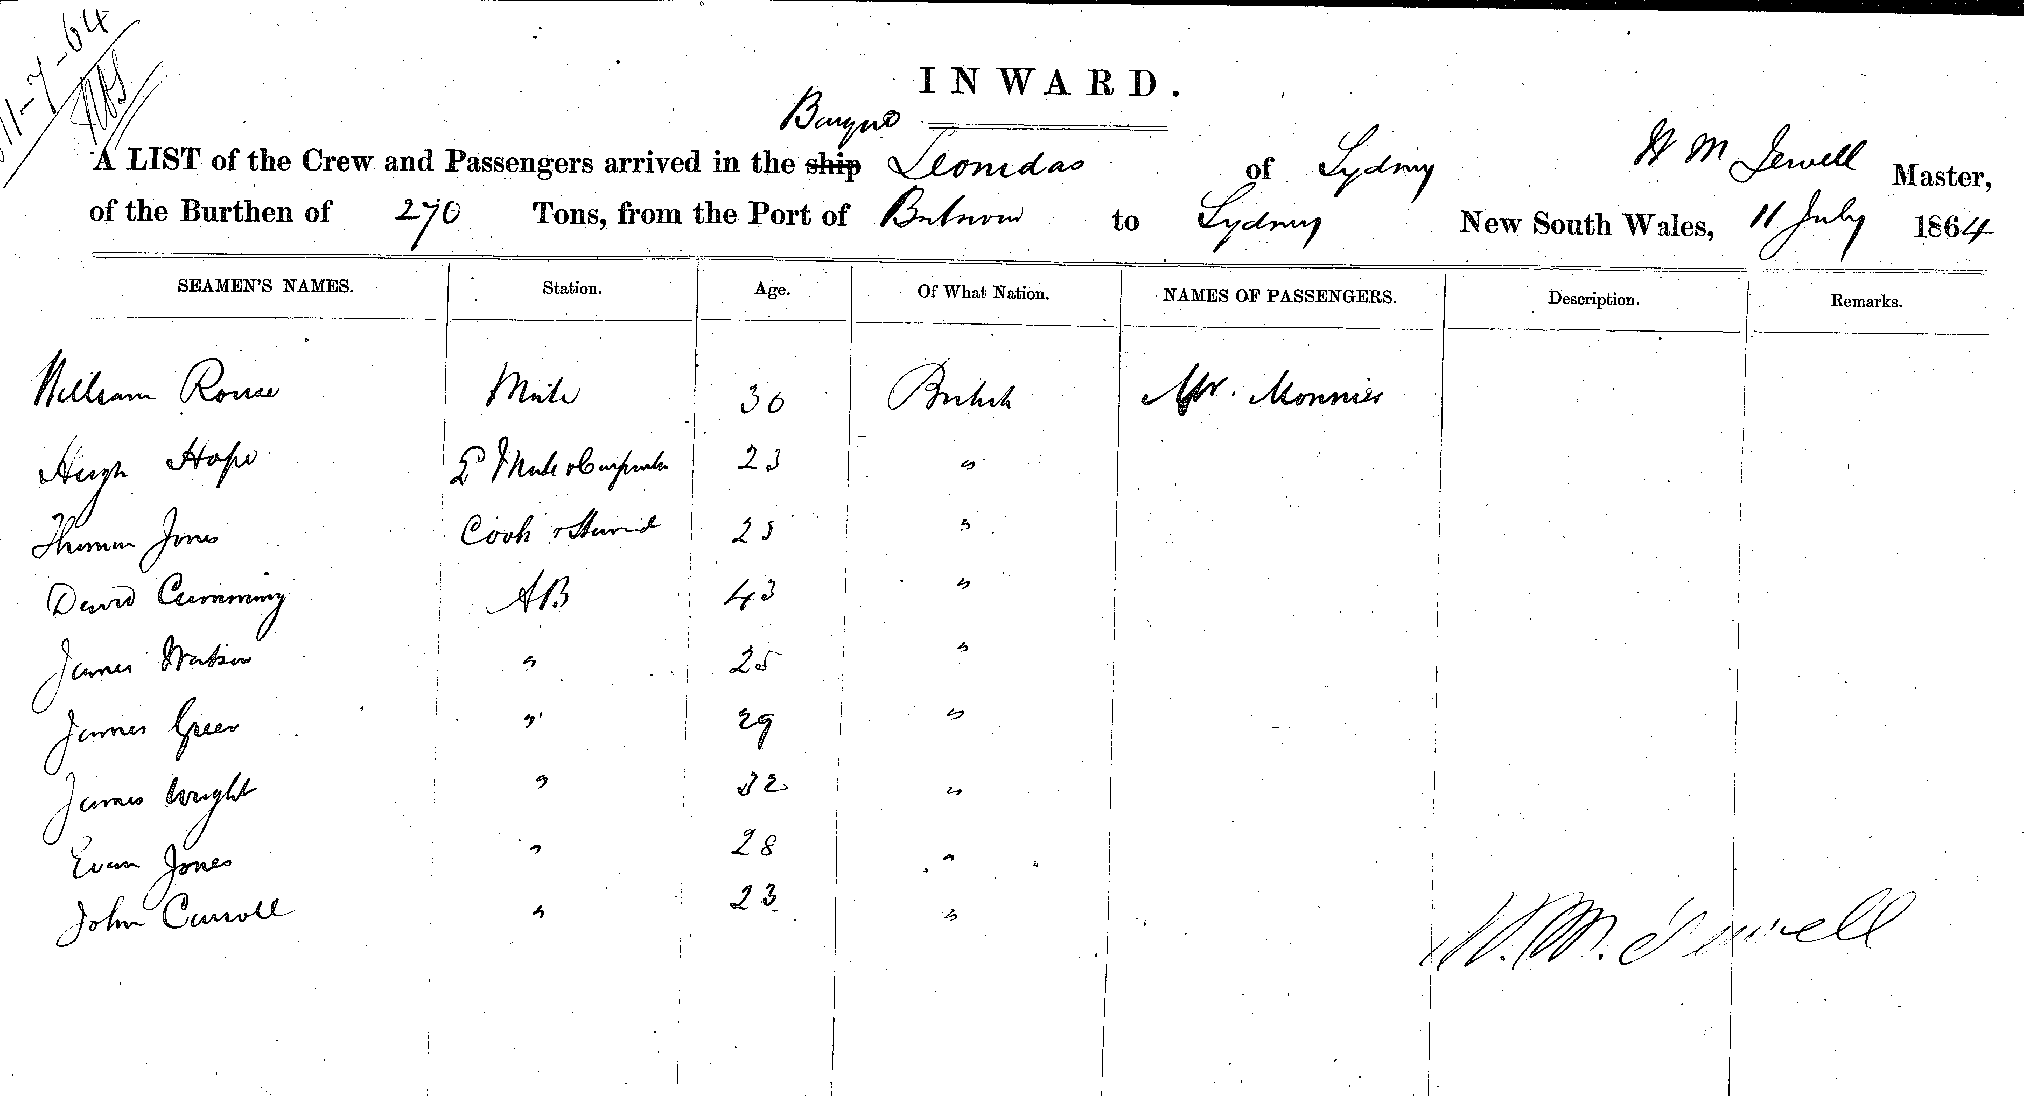 11-7-64
INWARD.
Barque
A LIST of the Crew and Passengers arrived in the ship Leonidas of Sydney W M Jewell Master,
of the Burthen of 270 Tons, from the Port of to Sydney New South Wales, 11 July 1864
SEAMEN'S NAMES. Station. Age. Of What Nation. NAMES OF PASSENGERS. Description. Remarks.
William Rouse Mate 30 British Mr. Monnier
Hugh Hope 2d Mate & Carpenter 23 "
Thomas Jones Cook & Steward 25 "
David Cumming AB 43 "
James Watson " 25 "
James Green " 29 "
James Wright " 32 "
Evan Jones " 28 "
John Carroll " 23 "
W. M. Jewell